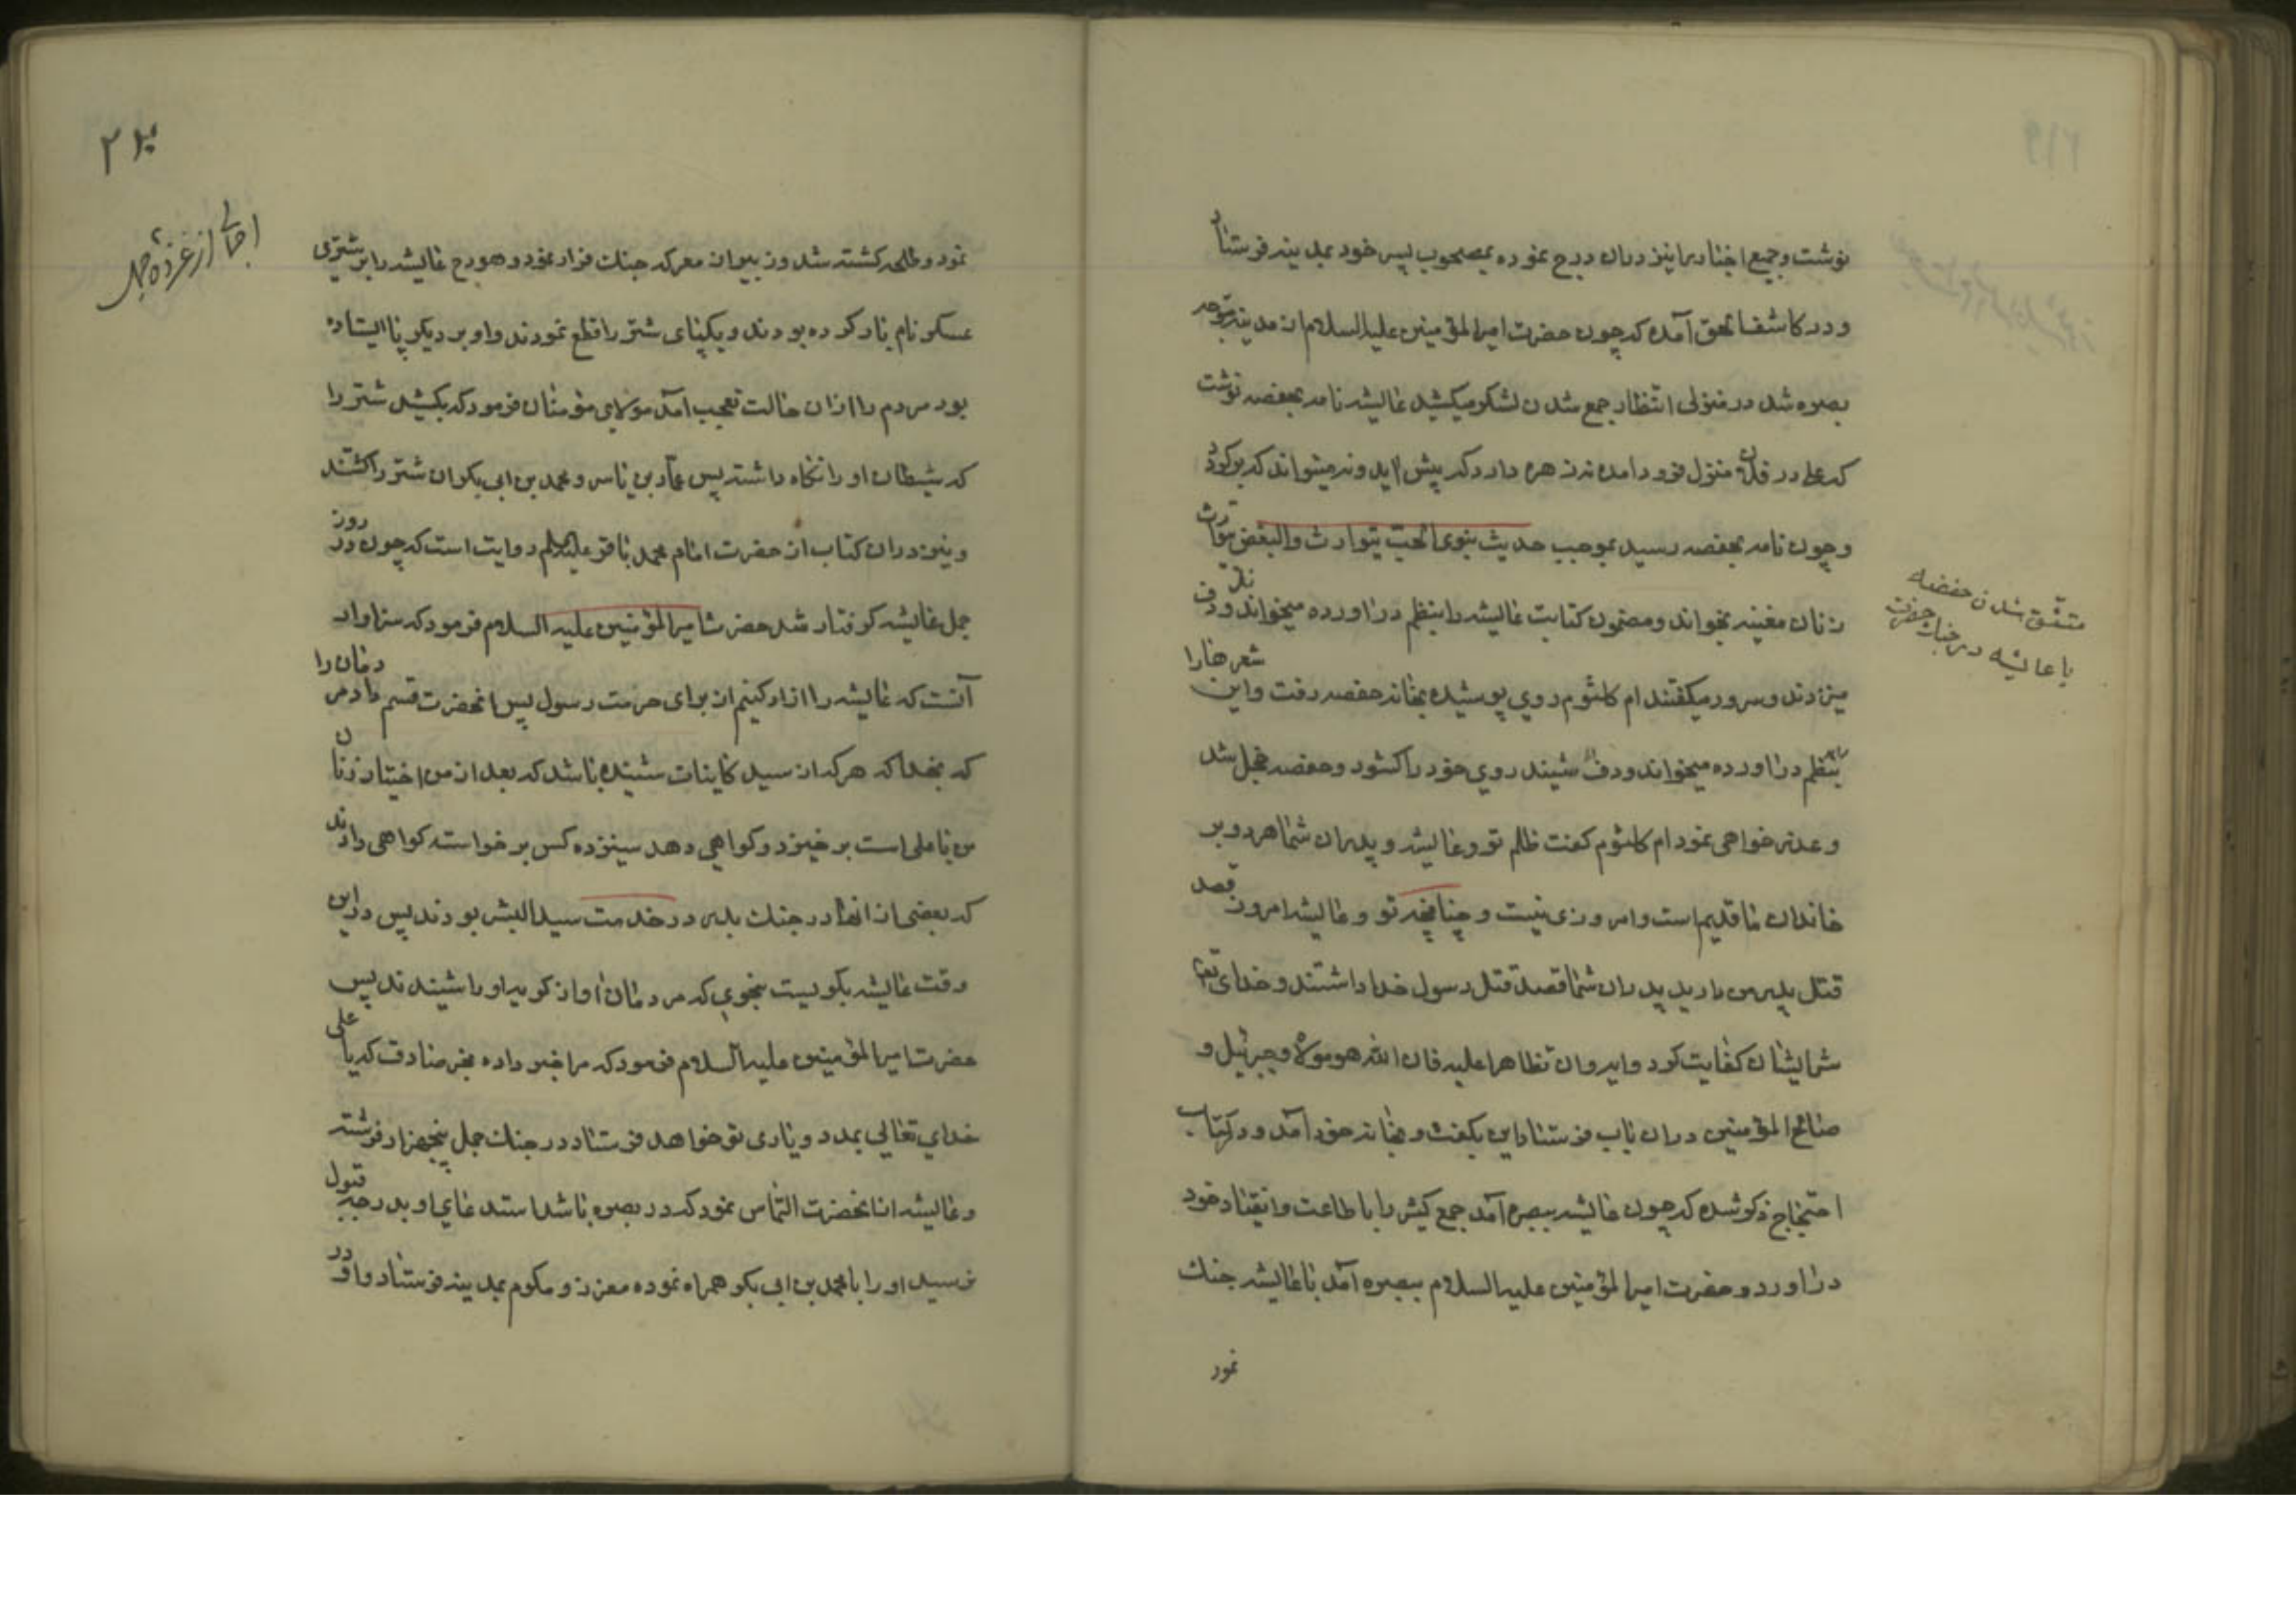 نوشت و جمیع اخبار را نیز دران درج نموده بمصحوب پسر خود بمدینه فرستاد
و در کاشف الحق آمده که چون حضرت امیر المؤمنین علیه السلام از مدینه متوجه
بصره شد در منزلی انتظار جمع شدن لشکر میکشید عایشه نامه بحفصه نوشت
که علی در فلان منزل فرود آمده نه زهره دارد که پیش اید و نه میتواند که برکردد
و چون نامه بحفصه رسید بموجب حدیث نبوی الحب یتوارث والبغض یتوارث
زنان مغنیه بخواند و مضمون کتابت عایشه را بنظم دراورده میخواندند و دف
میزدند و سرود میکفتند ام کلثوم روی پوشیده بخانه حفصه رفت و این شعرها را
بنظم دراورده میخواند و دف شنیند روی خود را کشود و حفصه خجل شد
و عذر خواهی نمود ام کلثوم کفت ظلم تو و عایشه و پدران شما هر دو بر
خاندان ما قدیم است و امروزی نیست و چنانچه تو و عایشه امروز قصد
قتل پدر من دارید پدران شما قصد قتل رسول خدا داشتند و خدای تعا
شر ایشان کفایت کرد و ایه وان تظاهرا علیه فان الله هو مولاه و جبرئیل و
صالح المؤمنین دران باب فرستاد این بکفت و بخانه خود آمد و در کتاب
احتجاج ذکر شده که چون عایشه ببصره آمد جمع کثیر را باطاعت و انقیاد خود
دراورد و حضرت امیر المؤمنین علیه السلام ببصره آمد با عایشه جنک
نمود
متفق شدن حفصه
با عایشه در جنک حضرت
۲۲۰
اجمالی از غزوه جمل
نمود و طلحه کشته شد و زبیر از معرکه جنک فرار نمود و هودج عایشه را بر شتری
عسکر نام بار کرده بودند و یکپای شتر را قطع نمودند و او بر دیکر پا ایستاده
بود مردم را ازان حالت تعجب آمد مولای مؤمنان فرمود که بکشید شتر را
که شیطان او را نکاه داشته پس عمار بن یاسر و محمد بن ابی بکر ان شتر را کشتند
و نیز دران کتاب از حضرت امام محمد باقر علیه السلم روایت است که چون در روز
جمل عایشه کرفتار شد حضرت امیر المؤمنین علیه السلام فرمود که سزاوار
آنست که عایشه را ازاد کنیم از برای حرمت رسول پس انحضرت قسم داد مردمان را
که بخدا که هر که از سید کاینات شنیده باشد که بعد از من اختیار زنان
من با علی است بر خیزد و کواهی دهد سیزده کس بر خواسته کواهی دادند
که بعضی از انها در جنک بدر در خدمت سید البشر بودند پس در این
وقت عایشه بکریست بنحوی که مردمان آواز کریه او را شنیدند پس
حضرت امیر المؤمنین علیه السلام فرمود که مرا خبر داده مخبر صادق که یا علی
خدای تعالی بمدد و یاری تو خواهد فرستاد در جنک جمل پنجهزار فرشته
و عایشه از انحضرت التماس نمود که در بصره باشد استدعای او بدرجه قبول
نرسید او را با محمد بن ابی بکر همراه نموده معزز و مکرم بمدینه فرستاد و او در